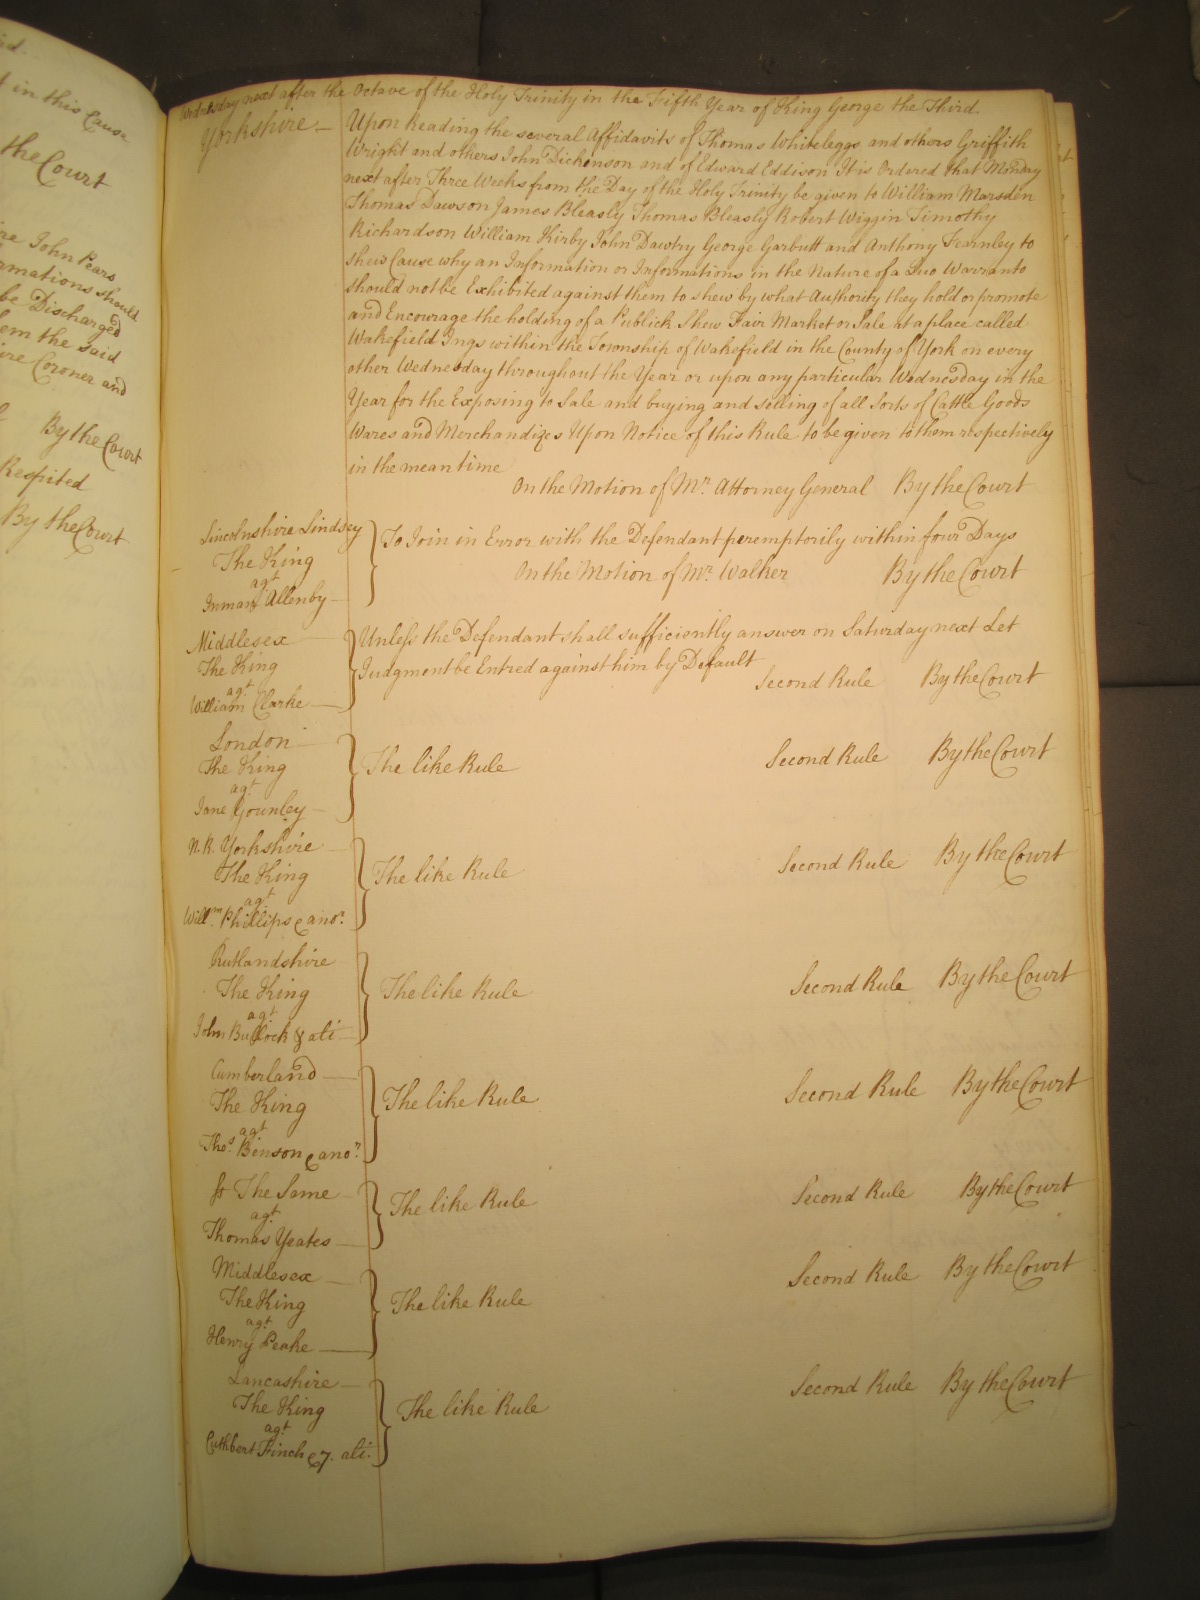 id.
t in this Cause
the Court
re John Pears
rmations should
be Discharged
em the said
ire Coroner and
By the Court
Respited
By the Court
Wednesday next after the Octave of the Holy Trinity in the Fifth Year of King George the Third.
Yorkshire Upon Reading the several Affidavits of Thomas Whiteleggs and others Griffith
Wright and others John Dickinson and of Edward Eddison It is Ordered that Monday
next after Three Weeks from the Day of the Holy Trinity be given to William Marsden
Thomas Dawson James Bleasly Thomas Bleasly Robert Wiggin Timothy
Richardson William Kirby John Dawtry George Garbutt and Anthony Fearnley to
shew Cause why an Information or Informations in the Nature of a Quo Warranto
should not be Exhibited against them to shew by what Authority they hold or promote
and Encourage the holding of a Publick Shew Fair Market or Sale at a place called
Wakefield Ings within the Township of Wakefield in the County of York on every
other Wednesday throughout the Year or upon any particular Wednesday in the
Year for the Exposing to Sale and buying and selling of all Sorts of Cattle Goods
Wares and Merchandizes Upon Notice of this Rule to be given to them respectively
in the mean time
On the Motion of Mr. Attorney General By the Court
Lincolnshire Lindsey
The King
agt
Inman Allenby
To Join in Error with the Defendant peremptorily within four Days
On the Motion of Mr. Walker By the Court
Middlesex
The King
agt
William Clarke
Unless the Defendant shall sufficiently answer on Saturday next Let
Judgment be Entred against him by Default
Second Rule By the Court
London
The King
agt
Jane Gounley
The like Rule Second Rule By the Court
N. R. Yorkshire
The King
agt
Willm. Phillips & anor.
The like Rule Second Rule By the Court
Rutlandshire
The King
agt
John Bullock & ali
The like Rule Second Rule By the Court
Cumberland
The King
agt
Thos. Benson & anor.
The like Rule Second Rule By the Court
ss The Same
agt
Thomas Yeates
The like Rule Second Rule By the Court
Middlesex
The King
agt
Henry Peake
The like Rule Second Rule By the Court
Lancashire
The King
agt
Cuthbert Finch & 7. ali.
The like Rule Second Rule By the Court